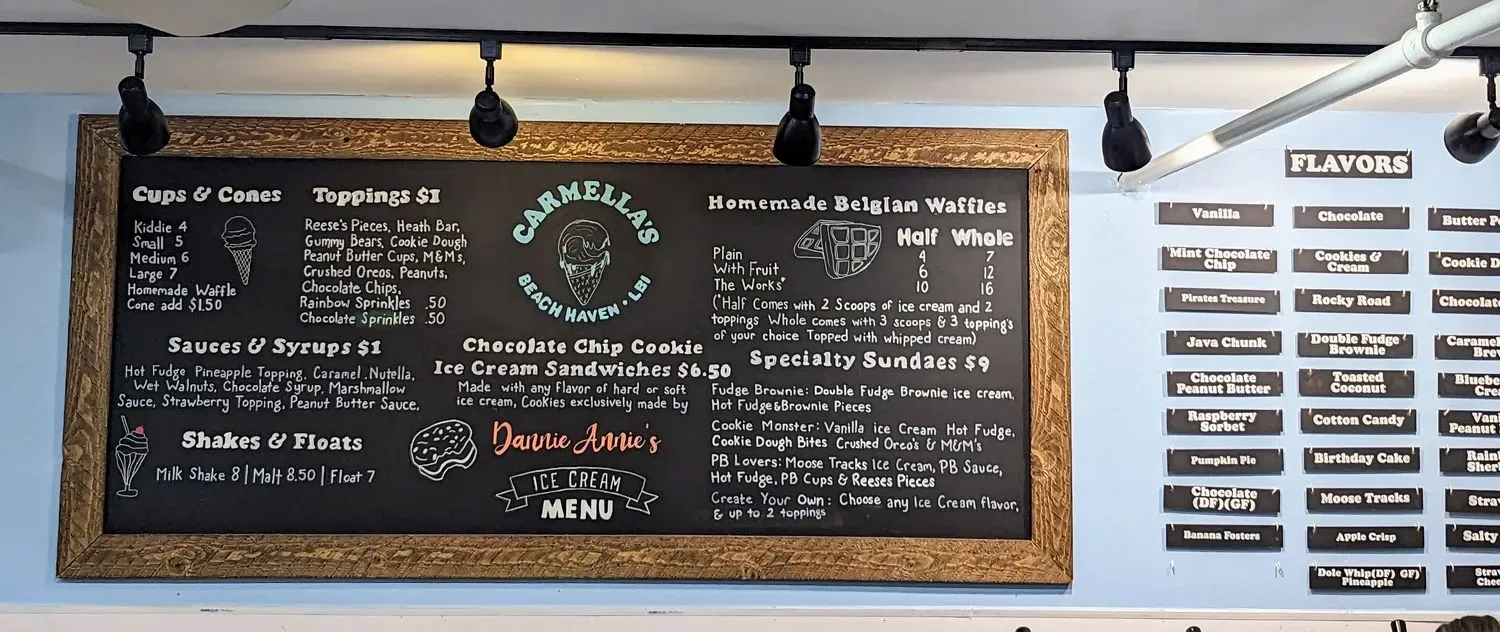 Cups & Cones
Kiddie 4
Small 5
Medium 6
Large 7
Homemade Waffle
Cone add $1.50
Toppings $1
Reese's Pieces, Heath Bar,
Gummy Bears, Cookie Dough
Peanut Butter Cups, M&M's,
Crushed Oreos, Peanuts,
Chocolate Chips,
Rainbow Sprinkles .50
Chocolate Sprinkles .50
Sauces & Syrups $1
Hot Fudge Pineapple Topping, Caramel, Nutella,
Wet Walnuts, Chocolate Syrup, Marshmallow
Sauce, Strawberry Topping, Peanut Butter Sauce,
Shakes & Floats
Milk Shake 8 | Malt 8.50 | Float 7
CARMELLA'S
BEACH HAVEN • LBI
Chocolate Chip Cookie
Ice Cream Sandwiches $6.50
Made with any flavor of hard or soft
ice cream, Cookies exclusively made by
Dannie Annie's
ICE CREAM
MENU
Homemade Belgian Waffles
Half Whole
Plain 4 7
With Fruit 6 12
The Works* 10 16
(*Half Comes with 2 Scoops of ice cream and 2
toppings Whole comes with 3 scoops & 3 topping's
of your choice Topped with whipped cream)
Specialty Sundaes $9
Fudge Brownie: Double Fudge Brownie ice cream,
Hot Fudge&Brownie Pieces
Cookie Monster: Vanilla ice Cream Hot Fudge,
Cookie Dough Bites Crushed Oreo's & M&M's
PB Lovers: Moose Tracks Ice Cream, PB Sauce,
Hot Fudge, PB Cups & Reeses Pieces
Create Your Own: Choose any Ice Cream flavor,
& up to 2 toppings
FLAVORS
Vanilla
Mint Chocolate
Chip
Pirates Treasure
Java Chunk
Chocolate
Peanut Butter
Raspberry
Sorbet
Pumpkin Pie
Chocolate
(DF)(GF)
Banana Fosters
Chocolate
Cookies &
Cream
Rocky Road
Double Fudge
Brownie
Toasted
Coconut
Cotton Candy
Birthday Cake
Moose Tracks
Apple Crisp
Dole Whip(DF) GF)
Pineapple
Butter
Cookie
Peanut
Salty